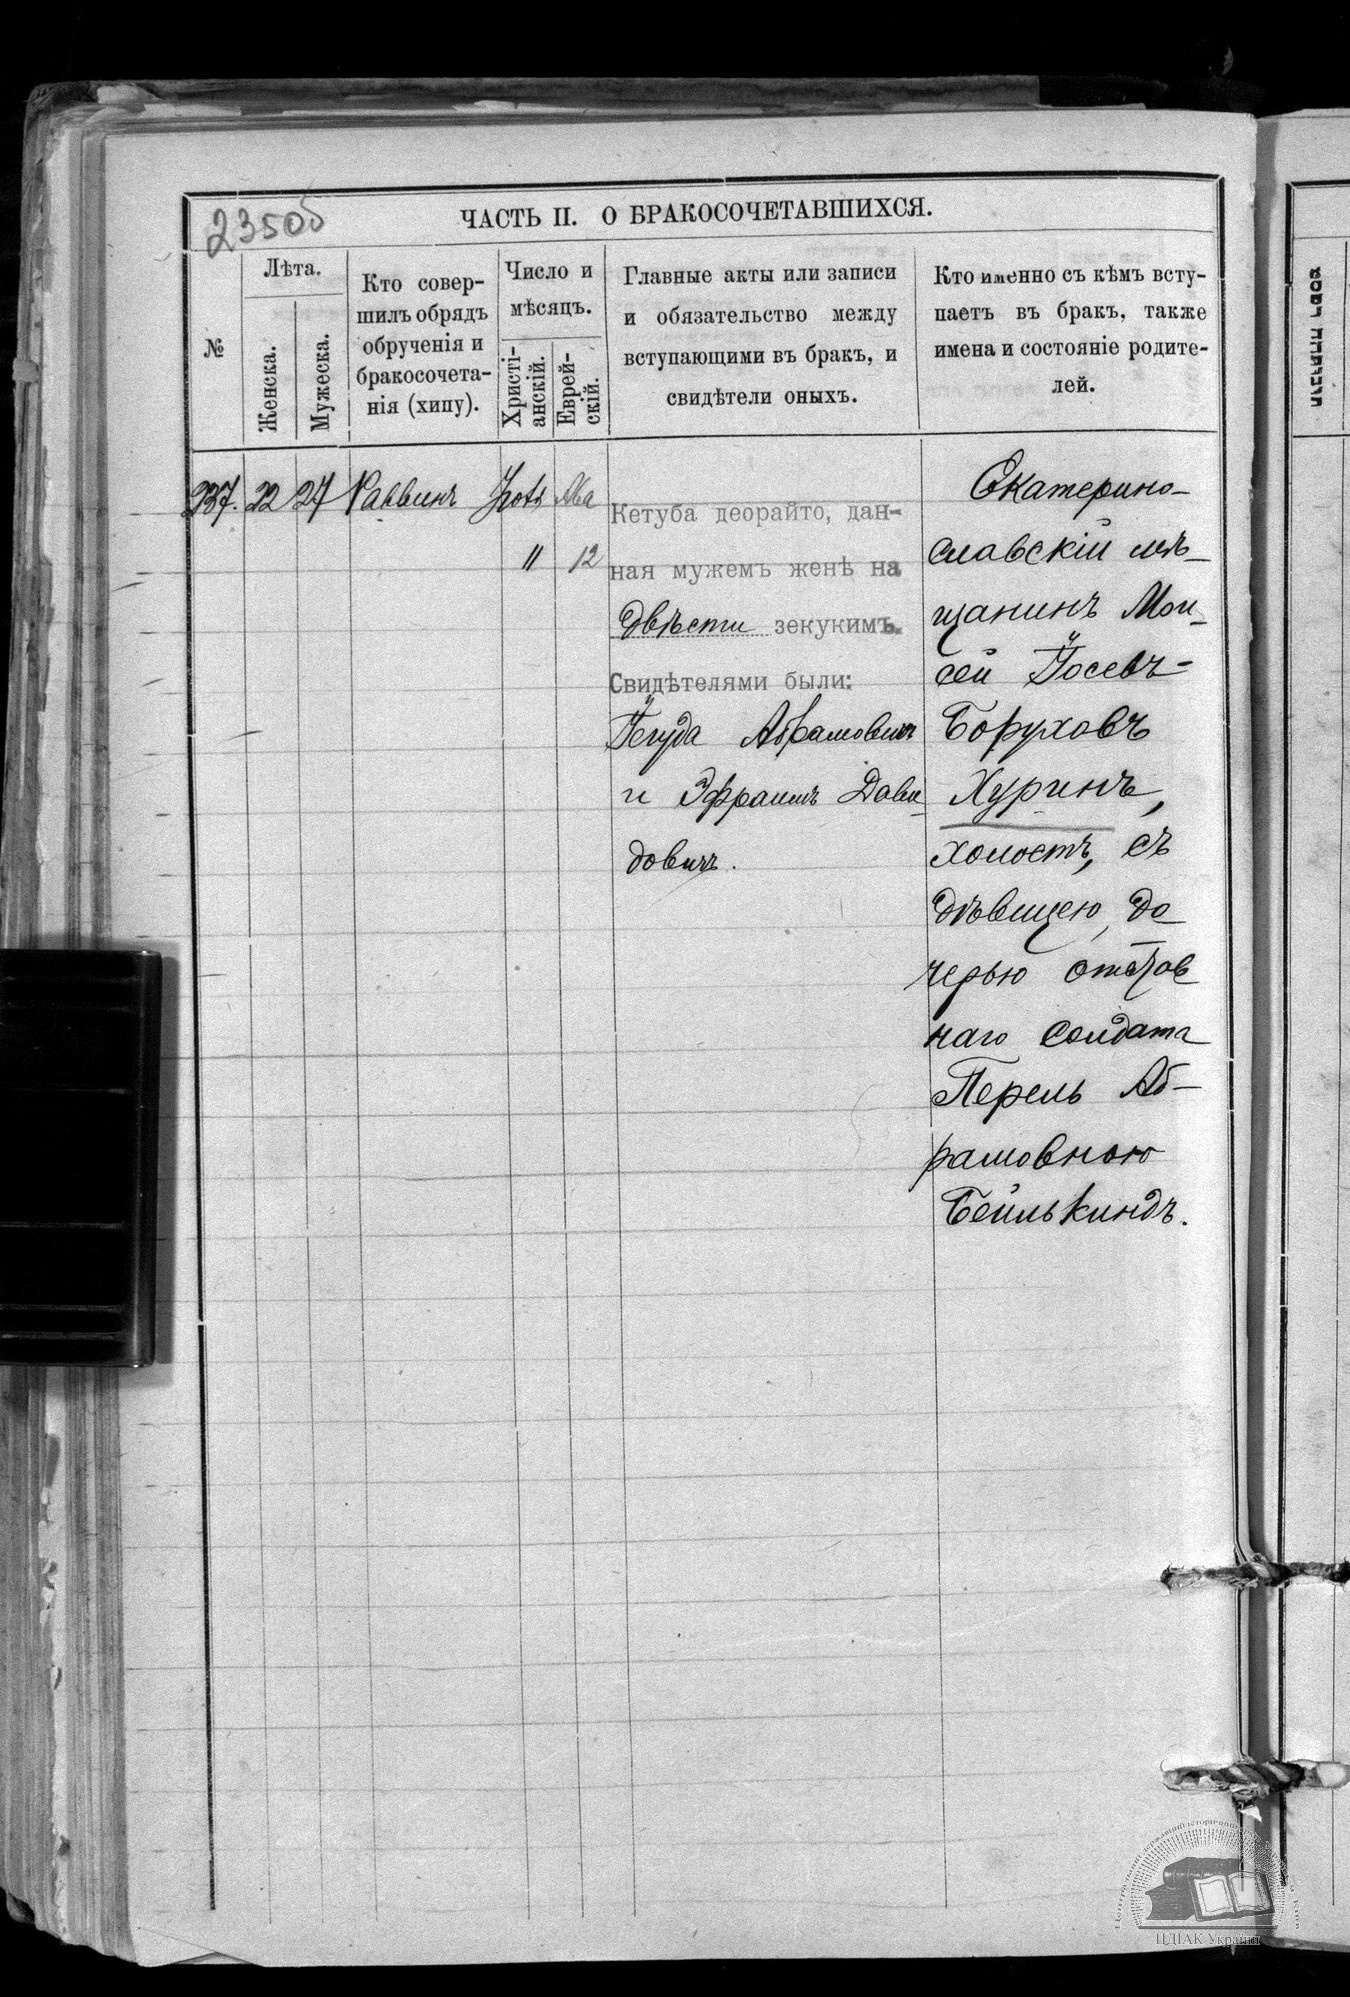 235об
ЧАСТЬ II. О БРАКОСОЧЕТАВШИХСЯ.
№
Лѣта.
Женска.
Мужеска.
Кто совер-
шилъ обрядъ
обрученія и
бракосочета-
нія (хипу).
Число и
мѣсяцъ.
Христі-
анскій.
Еврей-
скій.
Главные акты или записи
и обязательство между
вступающими въ бракъ, и
свидѣтели оныхъ.
Кто именно съ кѣмъ всту-
паетъ въ бракъ, также
имена и состояніе родите-
лей.
237. 22 27 Раввинъ
11 12
Кетуба деорайто, дан-
ная мужемъ женѣ на
двѣсти зекукимъ.
Свидѣтелями были:
Іегуда Абрамовичъ
и Эфраимъ Дави-
довичъ.
Екатерино-
славскій мѣ-
щанинъ Мои-
сей Іосевъ-
Боруховъ
Хуринъ,
холостъ, съ
дѣвицею, до-
черью отстав
наго солдата
Перель Аб-
рамовною
Бейлькиндъ.
ЦДІАК України